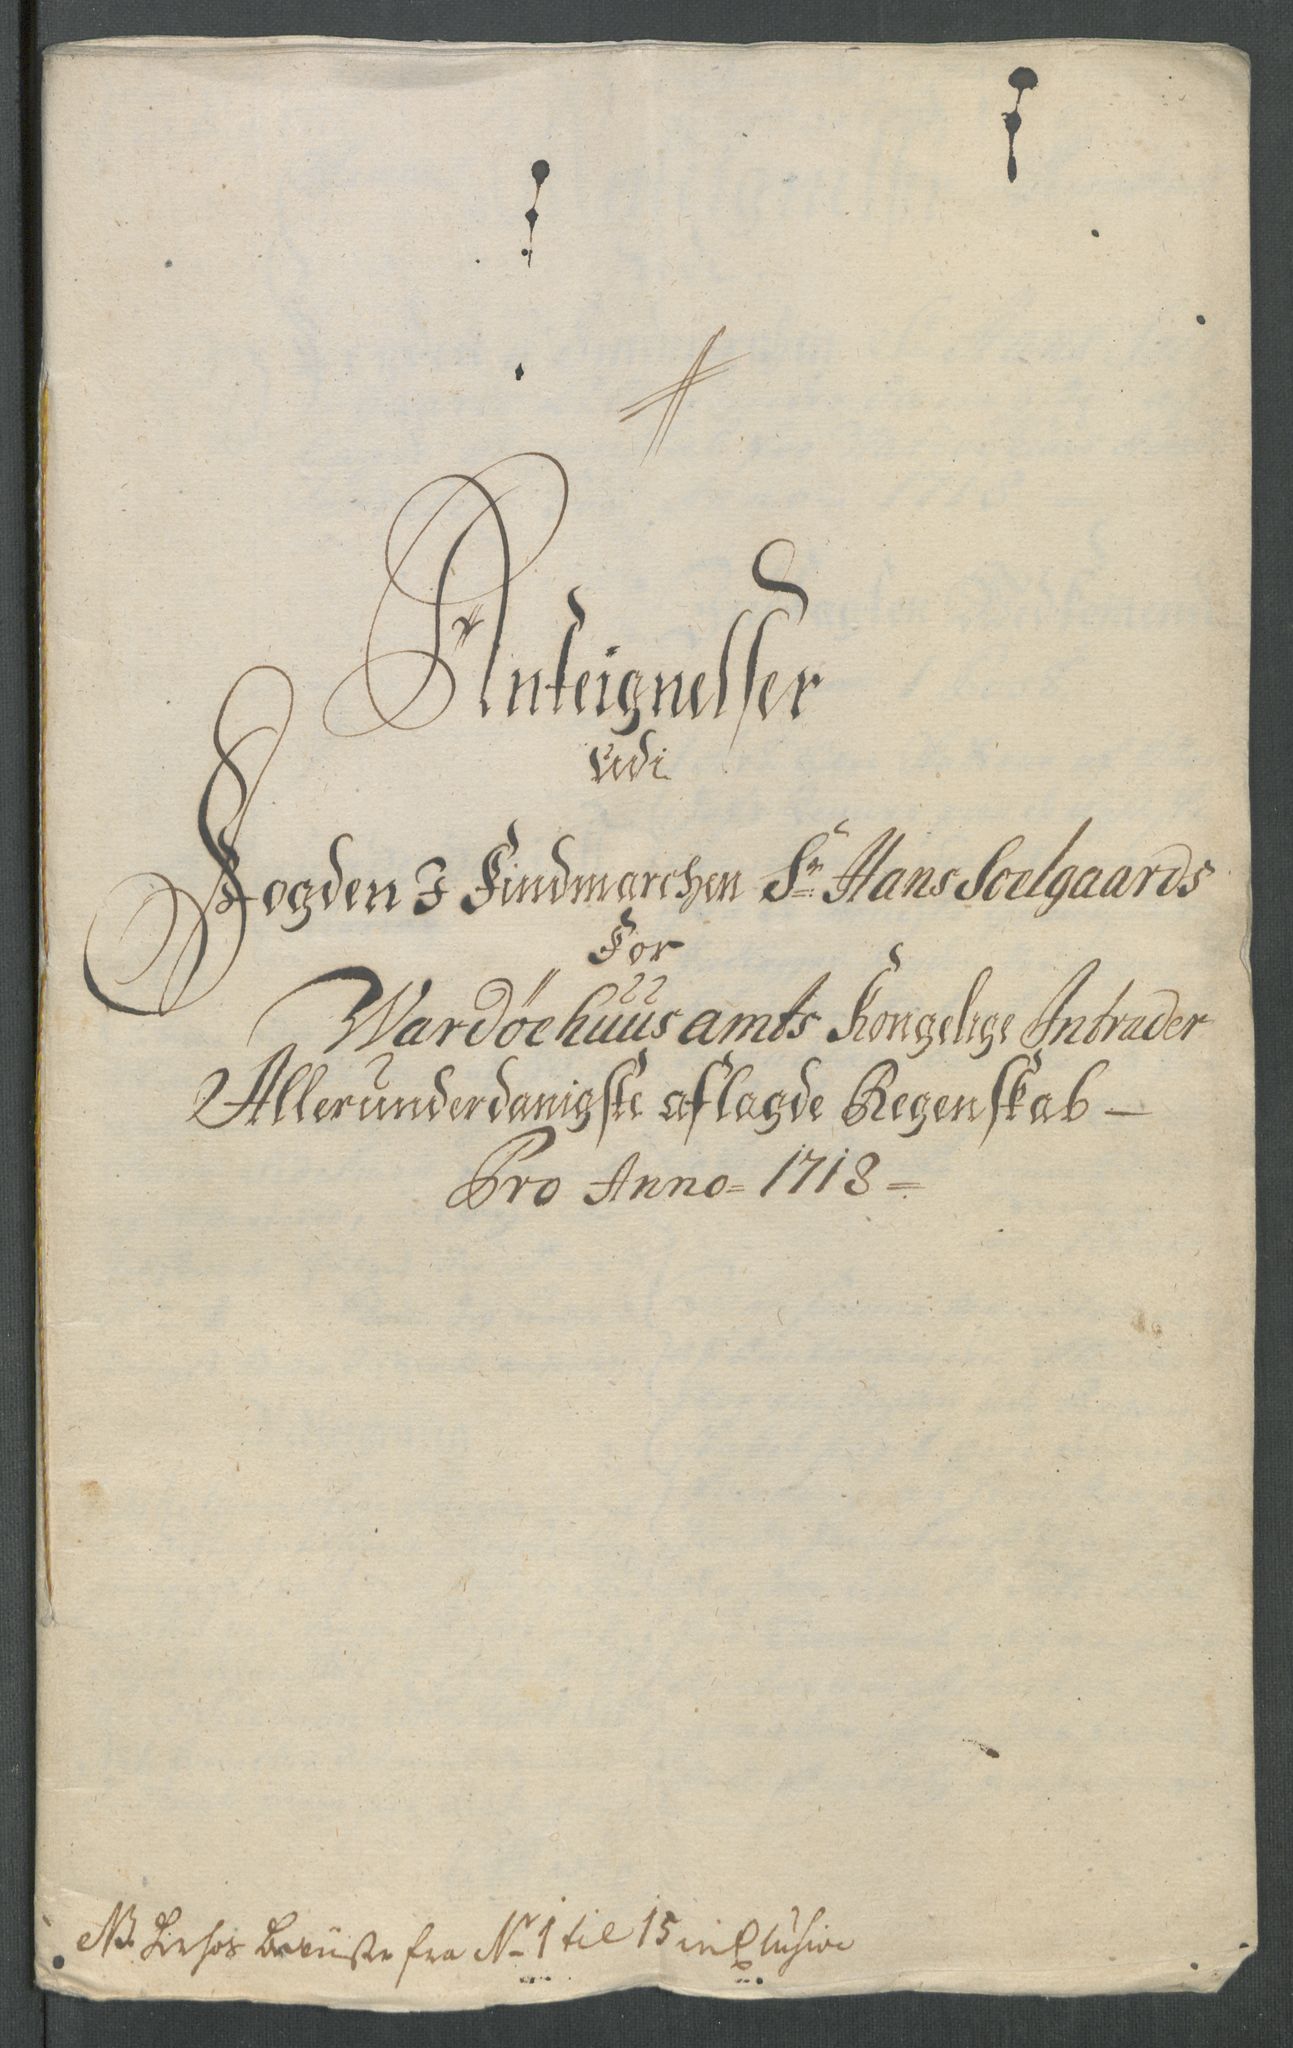 Anteignelser
udi
Fogden I Findmarchen Sr. Hans Soelgaards
For
Wardöehuus amts Kongelige Intrader
Allerunderdanigste aflagde Regenskab —
Pro Anno = 1718 =
NB. Herhos beviiste fra No 1 til 15 inclusive